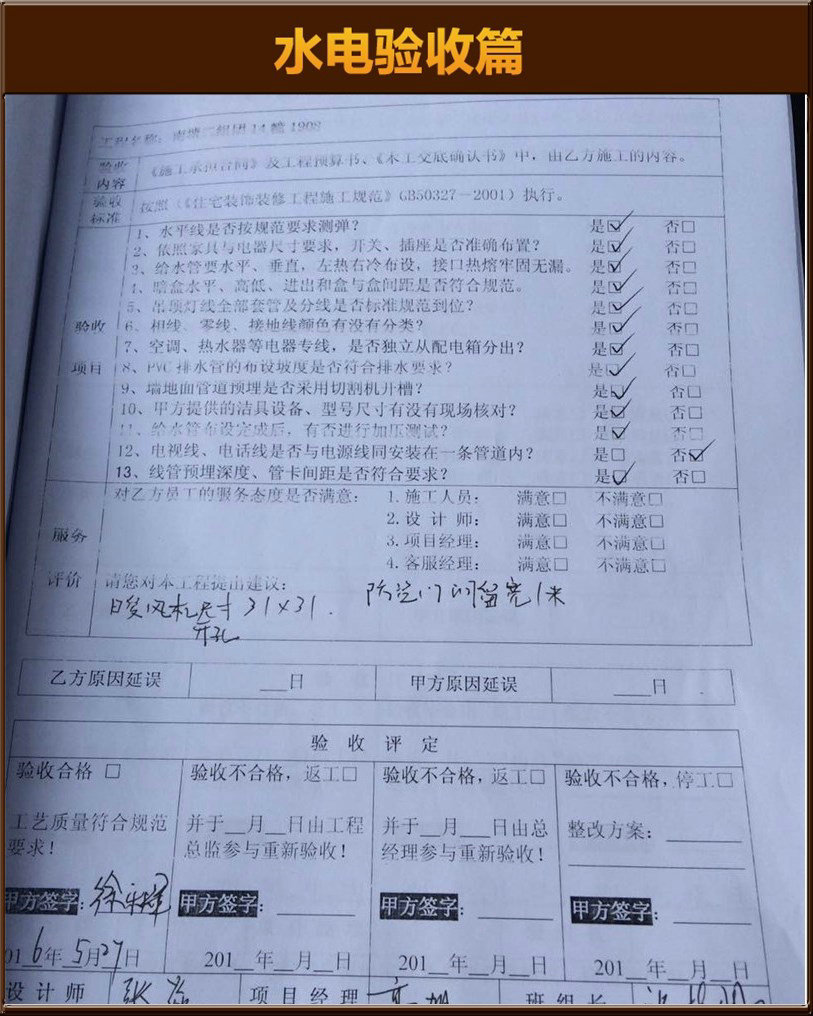 水电验收篇
工程名称：南塘二组团14幢1908
验收内容
《施工承担合同》及工程预算书、《木工交底确认书》中，由乙方施工的内容。
验收标准
按照（《住宅装饰装修工程施工规范》GB50327—2001）执行。
验收项目
1、水平线是否按规范要求测弹？ 是☑ 否□
2、依照家具与电器尺寸要求，开关、插座是否准确布置？ 是☑ 否□
3、给水管要水平、垂直，左热右冷布设，接口热熔牢固无漏。 是☑ 否□
4、暗盒水平、高低、进出和盒与盒间距是否符合规范。 是☑ 否□
5、吊顶灯线全部套管及分线是否标准规范到位？ 是☑ 否□
6、相线、零线、接地线颜色有没有分类？ 是☑ 否□
7、空调、热水器等电器专线，是否独立从配电箱分出？ 是☑ 否□
8、PVC排水管的布设坡度是否符合排水要求？ 是☑ 否□
9、墙地面管道预埋是否采用切割机开槽？ 是☑ 否□
10、甲方提供的洁具设备、型号尺寸有没有现场核对？ 是☑ 否□
11、给水管布设完成后，有否进行加压测试？ 是☑ 否□
12、电视线、电话线是否与电源线同安装在一条管道内？ 是□ 否☑
13、线管预埋深度、管卡间距是否符合要求？ 是☑ 否□
服务评价
对乙方员工的服务态度是否满意： 1.施工人员： 满意□ 不满意□
2.设计师： 满意□ 不满意□
3.项目经理： 满意□ 不满意□
4.客服经理： 满意□ 不满意□
请您对本工程提出建议：
风机尺寸31×31. 门留宽1米
开孔
乙方原因延误 __日 甲方原因延误 __日
验收评定
验收合格 □ 验收不合格，返工□ 验收不合格，返工□ 验收不合格，停工□
工艺质量符合规范 并于__月__日由工程 并于__月__日由总 整改方案：____
要求！ 总监参与重新验收！ 经理参与重新验收！
甲方签字： 甲方签字：____ 甲方签字：____ 甲方签字：____
016年5月27日 201__年__月__日 201__年__月__日 201__年__月__日
设计师 张 项目经理 班组长